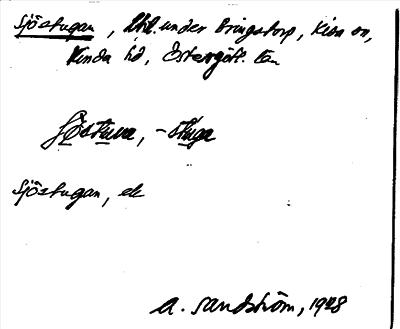 Sjöstugan, lhl. under Bringstorp, Kisa sn,
Kinda hd, Östergötl. län
Söstuva, -stuga
Sjöstugan, ek
A. Sandström, 1928